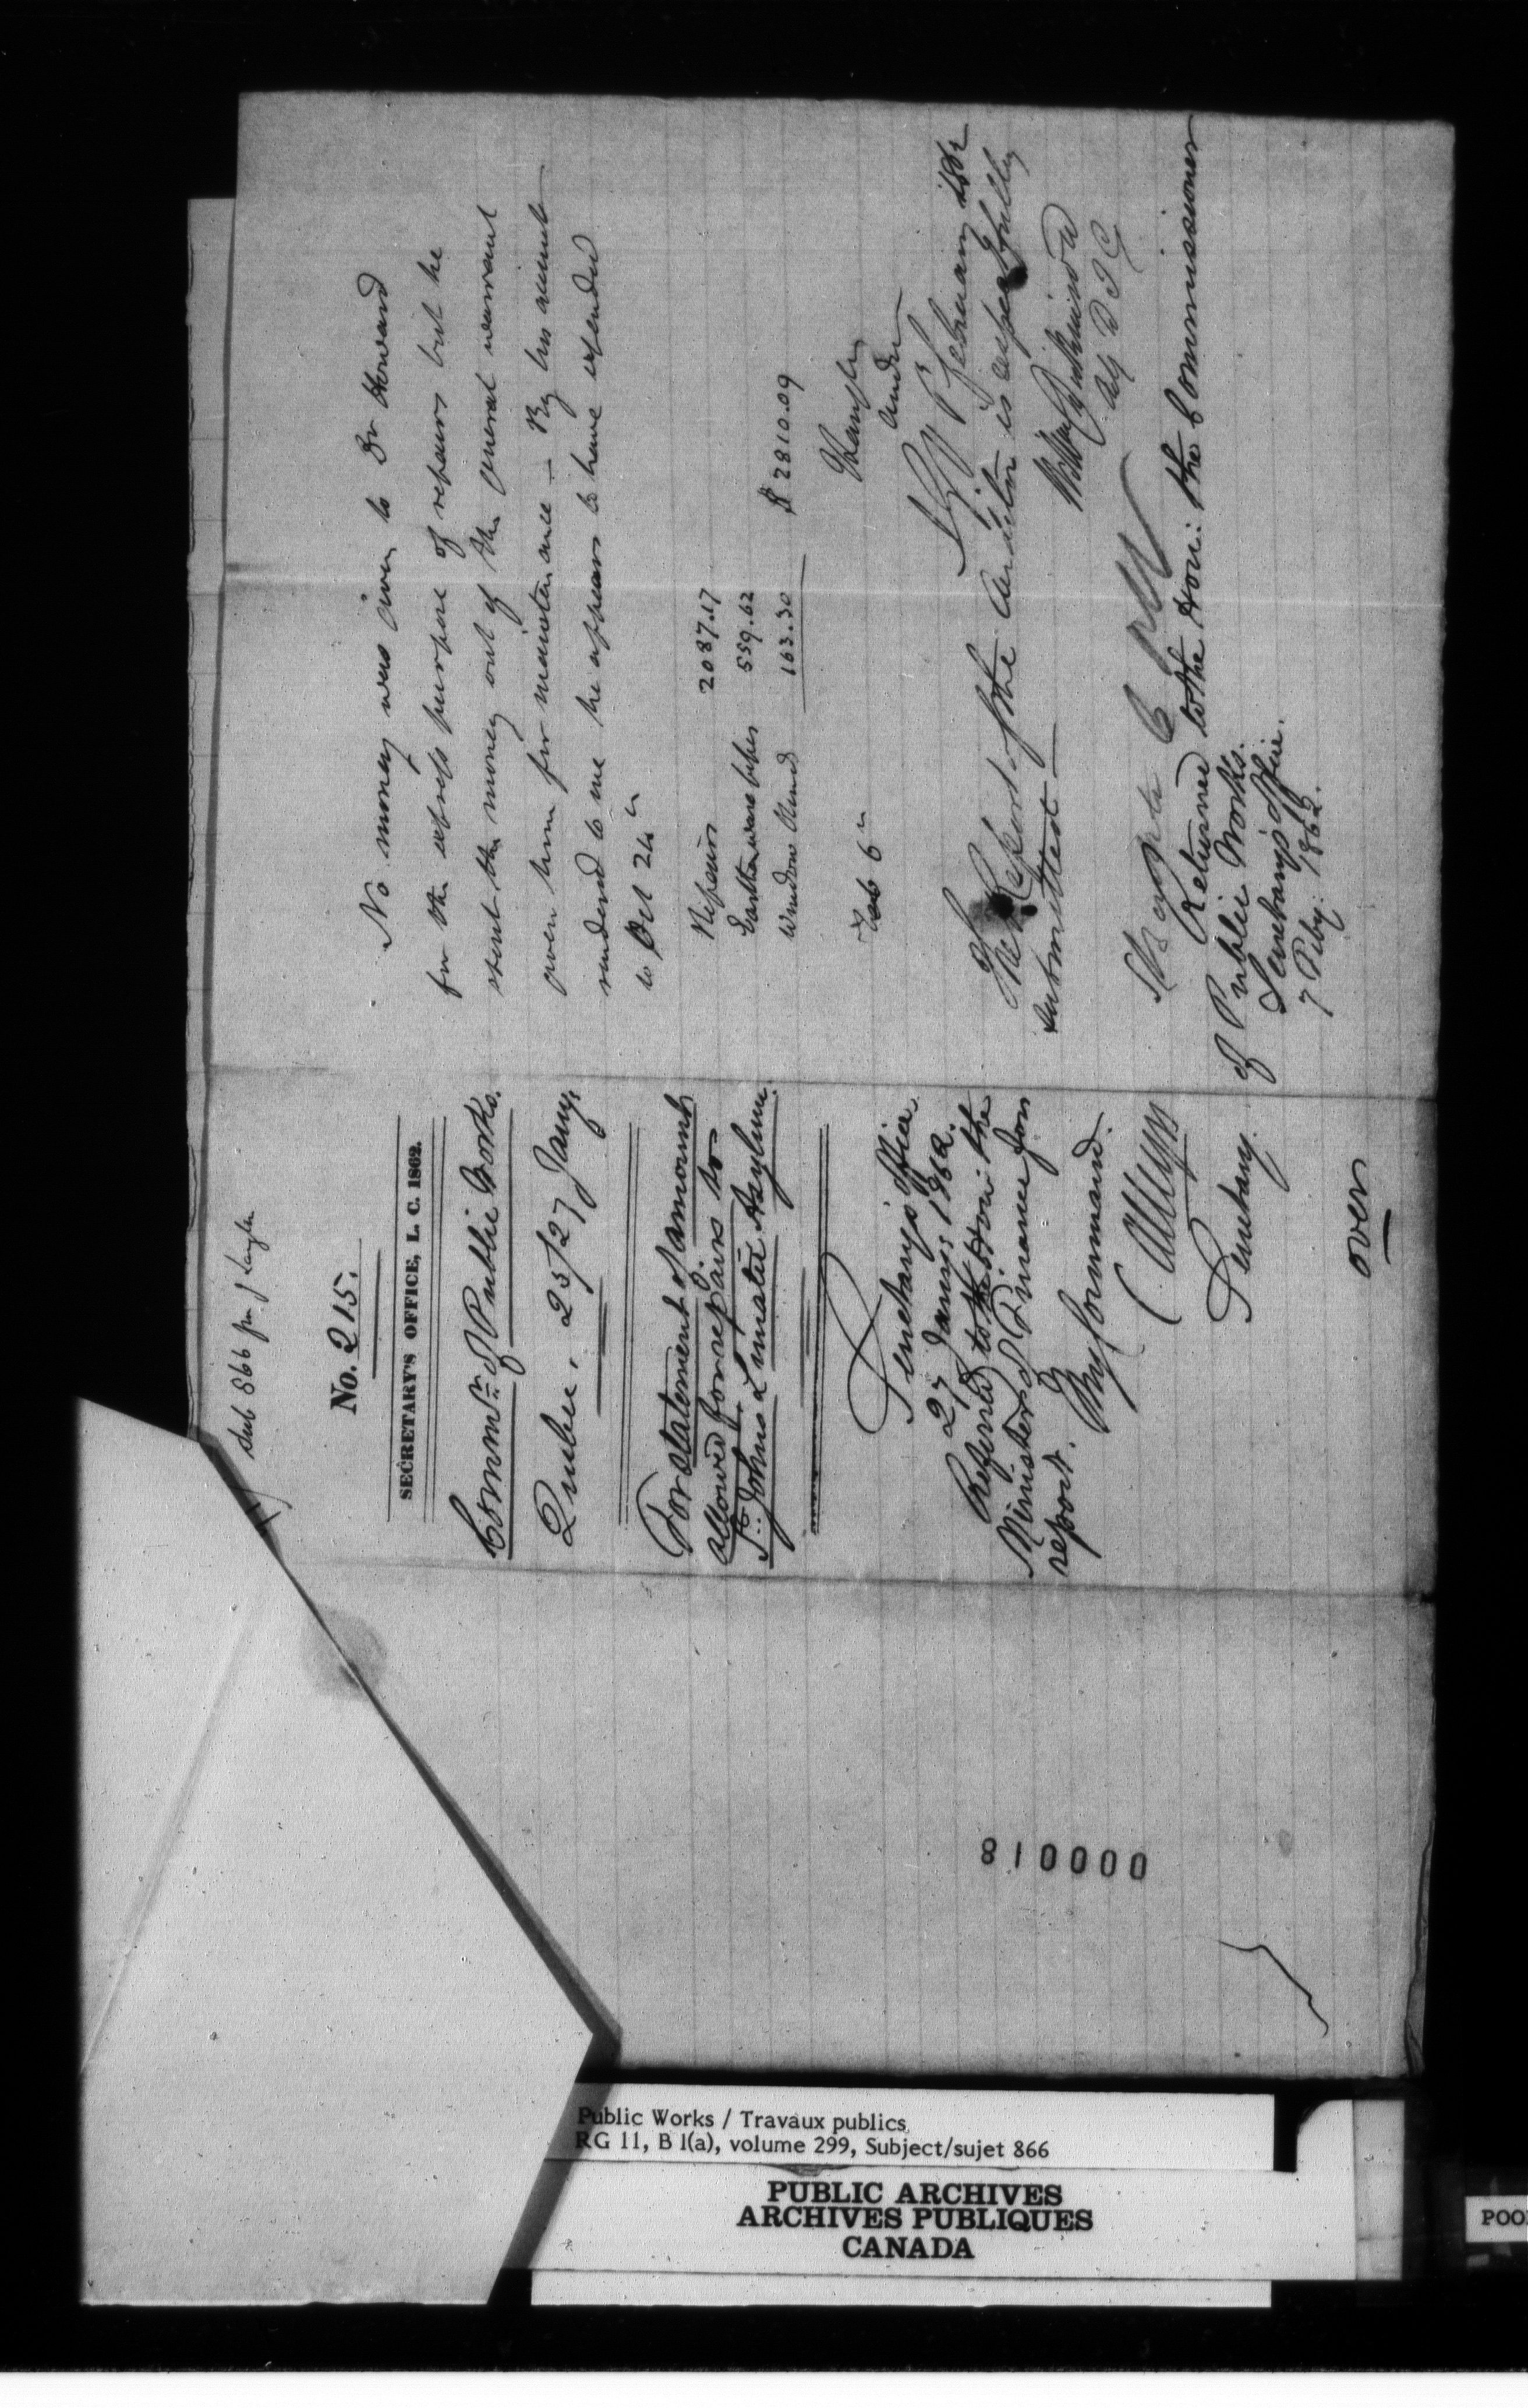 Sub 866 fr J Langton
No. 215.
SECRETARY'S OFFICE, L. C. 1862.
Commr. of Public Works.
Quebec. 25/27 Jany.
For statement of amounts
allowed for repairs to
St. Johns Lunatic Asylum.
Secretary's Office.
27 Jany: 1862.
Referred to the Hon: the
Minister of Finance for
report.
By Command.
Secretary.
over
No money was given to Dr Howard
for the express purpose of repairs but he
spent the money out of the general warrant
given him for maintenance — By his accounts
rendered to me he appears to have expended
to Oct 24
Repairs 2087.17
Earthenware pipes 559.62
Window blinds 163.30
$ 2810.09
Feb 6
J Langton
Auditor
7 February 1862
The Report of the Auditor is respectfully
submitted
Returned to the Hon: the Commissioner
of Public Works.
Secretary's Office.
7 Feby: 1862.
000018
Public Works / Travaux publics
RG 11, B 1(a), volume 299, Subject/sujet 866
PUBLIC ARCHIVES
ARCHIVES PUBLIQUES
CANADA
POO